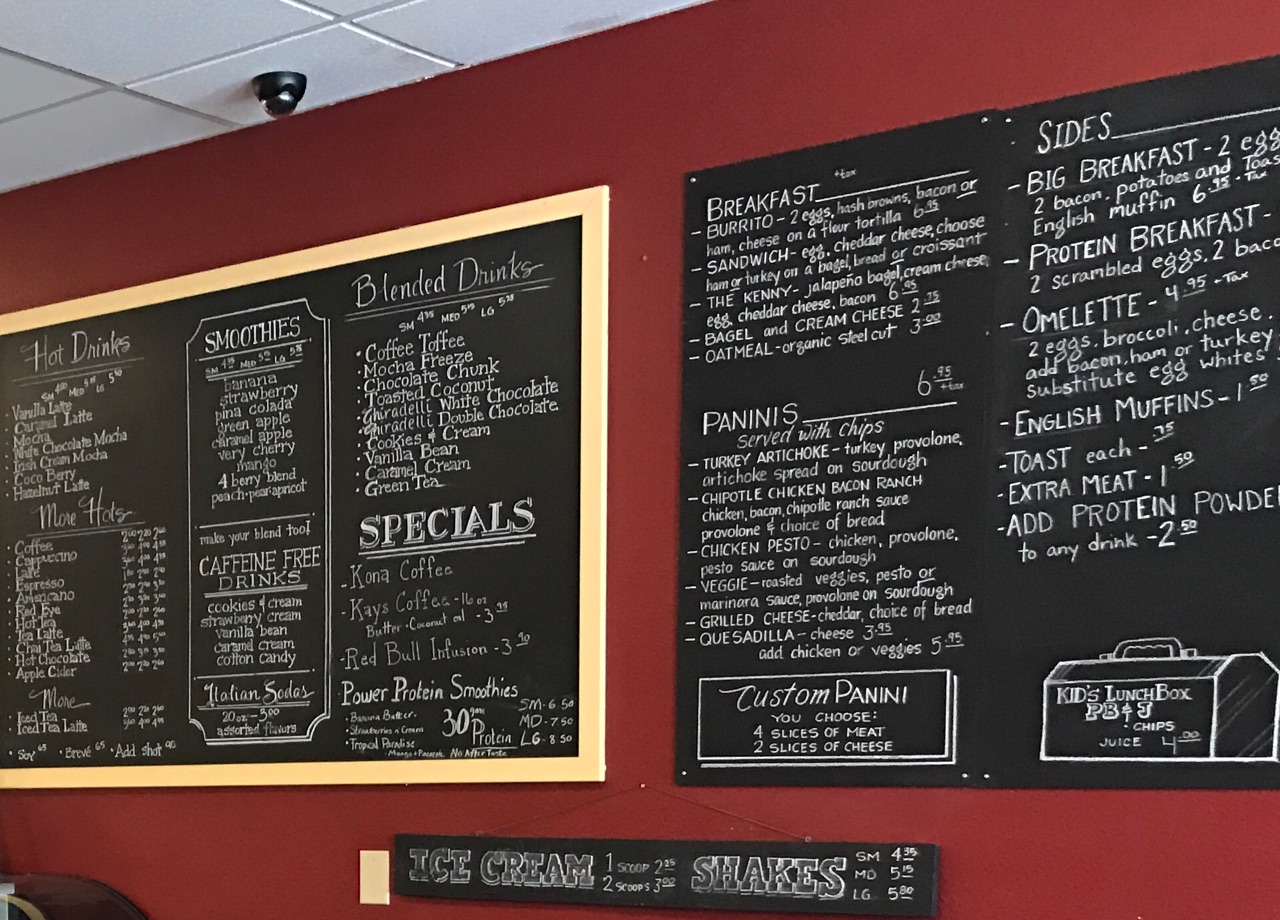 Hot Drinks
SM 4.00 MED 5
LG 5.50
Vanilla Latte
Caramel Latte
Mocha
White Chocolate Mocha
Irish Cream Mocha
Coco Berry
Hazelnut Latte
More Hots
Coffee
Cappuccino
Latte
Espresso
Americano
Red Eye
Hot Tea
Tea Latte
Chai Tea Latte
Hot Chocolate
Apple Cider
More
Iced Tea
Iced Tea Latte
• Soy 65 • Breve 65 • Add shot 90
SMOOTHIES
SM MED LG
banana
strawberry
pina colada
green apple
caramel apple
very cherry
mango
4 berry blend
peach·pear·apricot
make your blend too!
CAFFEINE FREE
DRINKS
cookies & cream
strawberry cream
vanilla bean
caramel cream
cotton candy
Italian Sodas
20oz - 3.00
assorted flavors
Blended Drinks
SM 4.95 MED LG
• Coffee Toffee
• Mocha Freeze
• Chocolate Chunk
• Toasted Coconut
• Ghiradelli White Chocolate
• Ghiradelli Double Chocolate
• Cookies & Cream
• Vanilla Bean
• Caramel Cream
• Green Tea
SPECIALS
- Kona Coffee
- Kays Coffee - 16 oz
Butter · Coconut oil - 3.95
- Red Bull Infusion - 3.90
Power Protein Smoothies
• Banana Butter.
• Strawberries n Cream
• Tropical Paradise
30 gms Protein
No After Taste
SM - 6.50
MD - 7.50
LG - 8.50
BREAKFAST +tax
- BURRITO - 2 eggs, hash browns, bacon or
ham, cheese on a flour tortilla 6.95
- SANDWICH - egg, cheddar cheese, choose
ham or turkey on a bagel, bread or croissant
- THE KENNY - jalapeño bagel, cream cheese,
egg, cheddar cheese, bacon 6.95
- BAGEL and CREAM CHEESE 2.75
- OATMEAL - organic steel cut 3.00
6.95 +tax
PANINIS
served with chips
- TURKEY ARTICHOKE - turkey, provolone,
artichoke spread on sourdough
- CHIPOTLE CHICKEN BACON RANCH
chicken, bacon, chipotle ranch sauce
provolone & choice of bread
- CHICKEN PESTO - chicken, provolone,
pesto sauce on sourdough
- VEGGIE - roasted veggies, pesto or
marinara sauce, provolone on sourdough
- GRILLED CHEESE - cheddar, choice of bread
- QUESADILLA - cheese 3.95
add chicken or veggies 5.95
Custom PANINI
YOU CHOOSE:
4 SLICES OF MEAT
2 SLICES OF CHEESE
SIDES
- BIG BREAKFAST - 2 egg
2 bacon, potatoes and Toas
English muffin 6.95 + Tax
- PROTEIN BREAKFAST -
2 scrambled eggs, 2 baco
- OMELETTE - 4.95 + Tax
2 eggs, broccoli, cheese.
add bacon, ham or turkey
Substitute egg whites
- ENGLISH MUFFINS - 1.50
- TOAST each - .75
- EXTRA MEAT - 1.50
- ADD PROTEIN POWDE
to any drink - 2.50
KID'S LUNCHBOX
PB & J
• CHIPS
JUICE 4.00
ICE CREAM
1 SCOOP 2.25
2 SCOOPS 3.00
SHAKES
SM 4.35
MD 5.15
LG 5.80